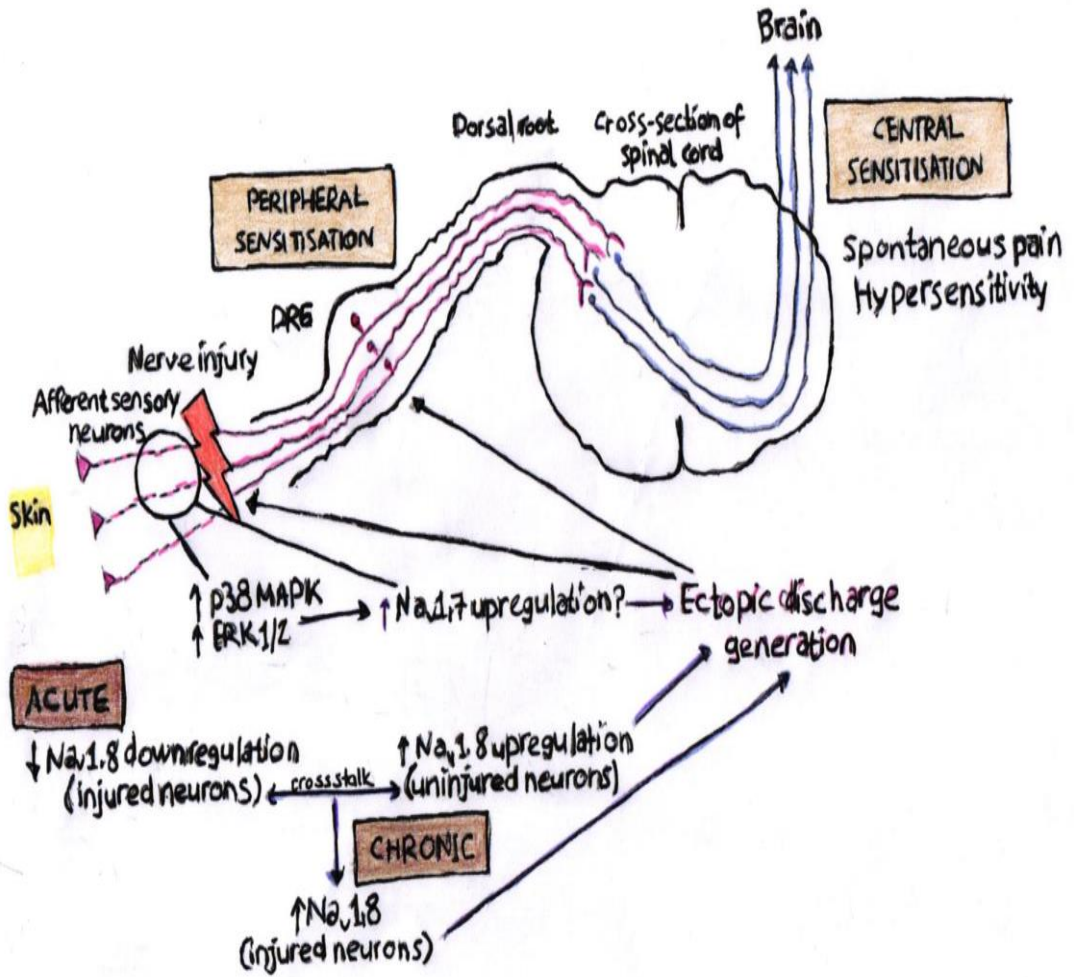 Brain
Dorsal root
Cross-section of
spinal cord
CENTRAL
SENSITISATION
PERIPHERAL
SENSITISATION
Spontaneous pain
Hypersensitivity
DRG
Nerve injury
Afferent sensory
neurons
Skin
↑ p38 MAPK
↑ ERK 1/2
↑ Nav1.7 upregulation?
Ectopic discharge
generation
ACUTE
↓ Nav1.8 downregulation
(injured neurons)
crosstalk
↑ Nav1.8 upregulation
(uninjured neurons)
CHRONIC
↑ Nav1.8
(injured neurons)